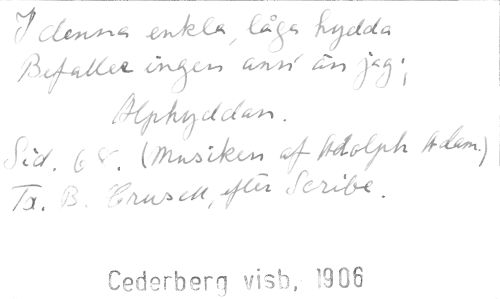 I denna enkla, låga hydda
Befaller ingen ann' än jag;
Alphyddan.
Sid. 68. (Musiken af Adolph Adam.)
Tx. B. Crusell, efter Scribe.
Cederberg visb, 1906